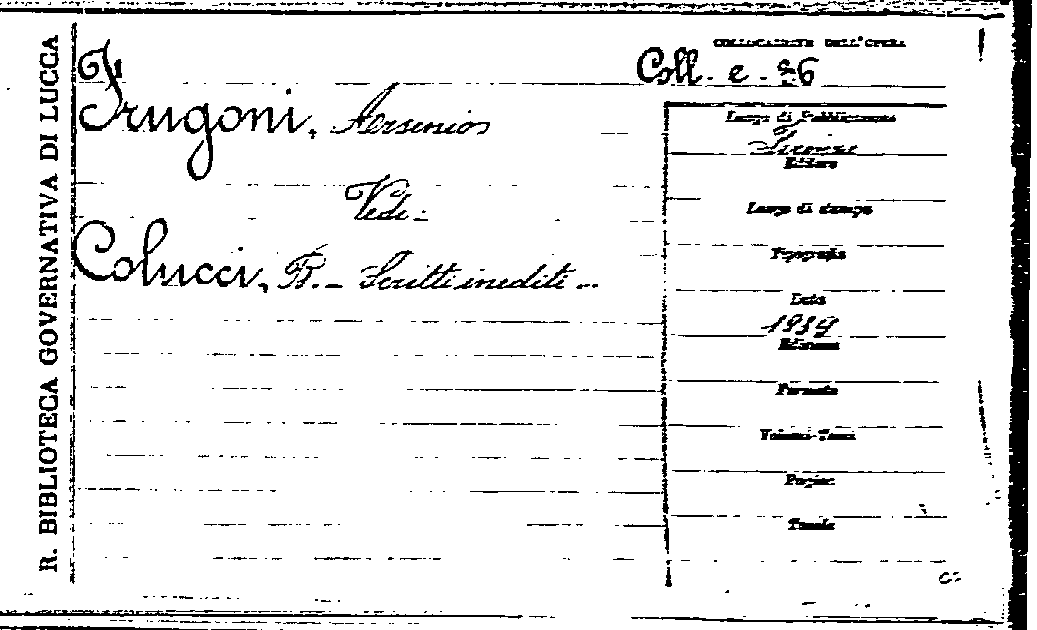 R. BIBLIOTECA GOVERNATIVA DI LUCCA
COLLOCAZIONE DELL'OPERA
Coll. e. 26
Frugoni, Arsenio
Vedi:
Colucci, B. - Scritti inediti...
Luogo di Pubblicazione
Firenze
Editore
Luogo di stampa
Tipografia
Data
1939
Edizione
Formato
Volumi-Tomi
Pagine
Tavole